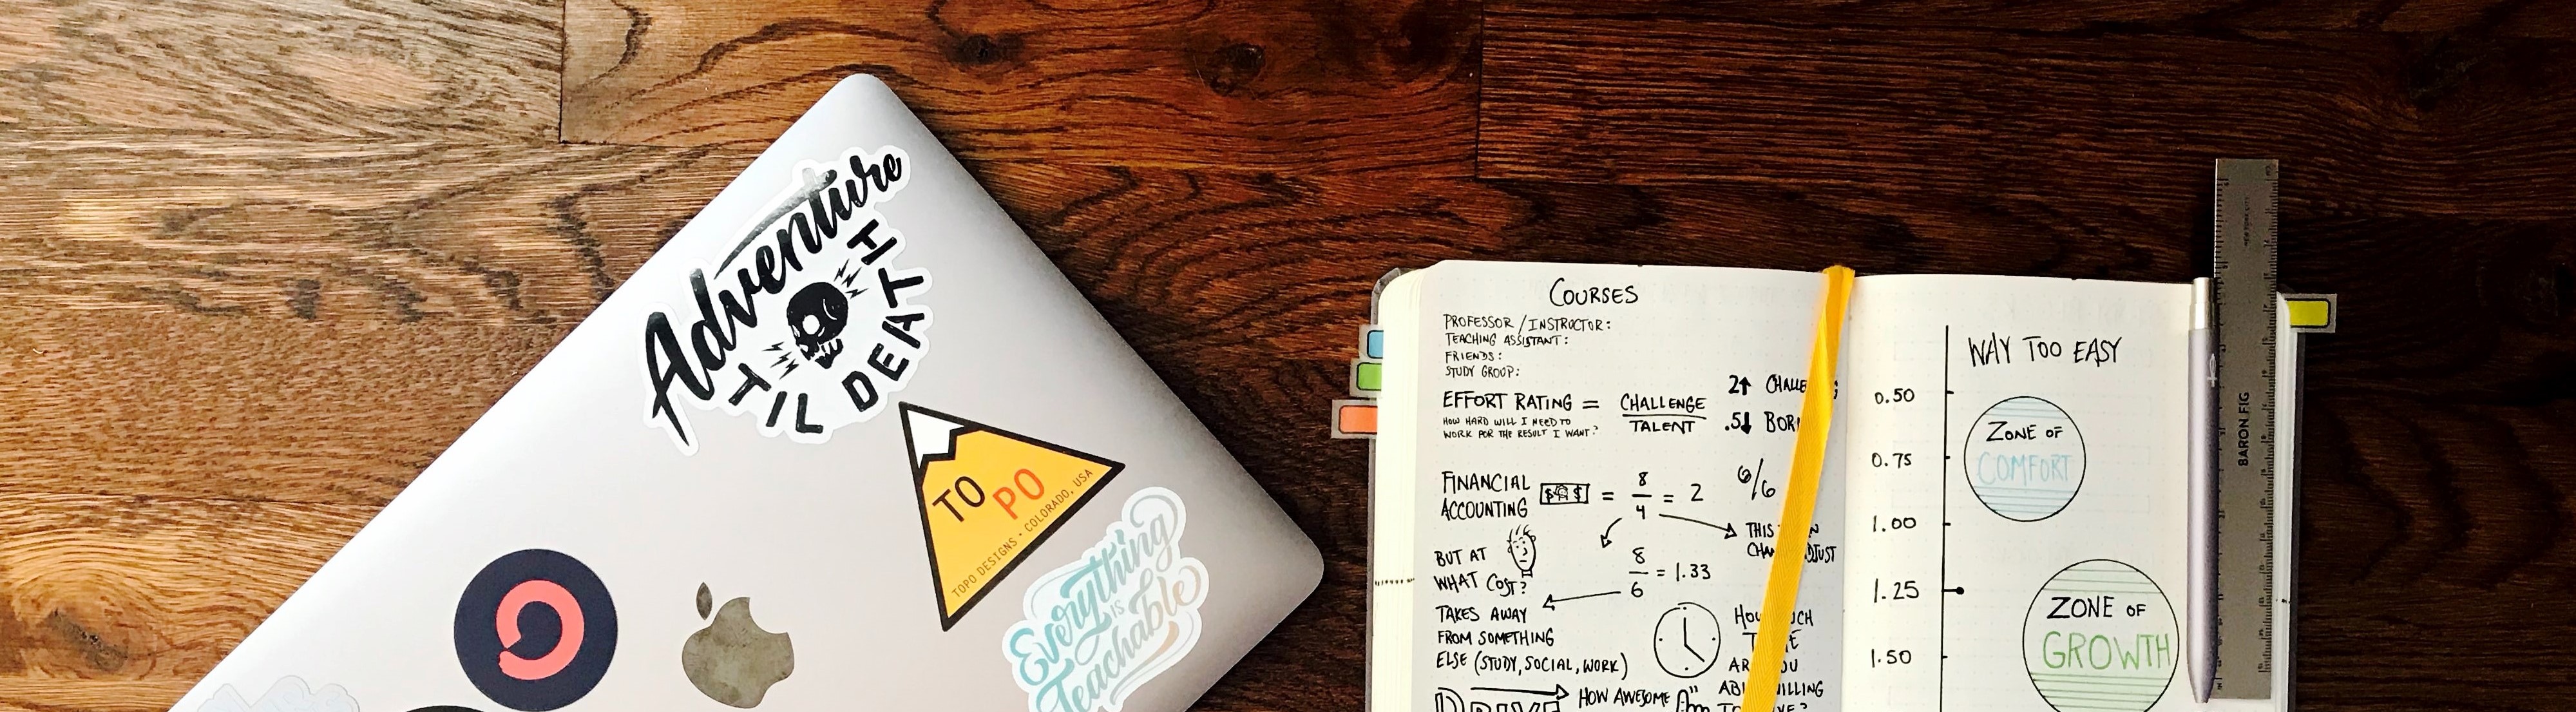 Adventure
TIL DEATH
TO
PO
TOPO DESIGNS - COLORADO, USA
Everything
is
Teachable
COURSES
PROFESSOR / INSTRUCTOR:
TEACHING ASSISTANT:
FRIENDS:
STUDY GROUP:
EFFORT RATING = CHALLENGE
TALENT
HOW HARD WILL I NEED TO
WORK FOR THE RESULT I WANT?
2↑
.5↓
FINANCIAL
ACCOUNTING $ $ = 8
4
= 2
6/6
THIS
BUT AT
WHAT COST?
8
6
= 1.33
TAKES AWAY
FROM SOMETHING
ELSE (STUDY, SOCIAL, WORK)
HOW AWESOME
WAY TOO EASY
0.50
ZONE OF
COMFORT
0.75
1.00
1.25
ZONE OF
GROWTH
1.50
BARON FIG